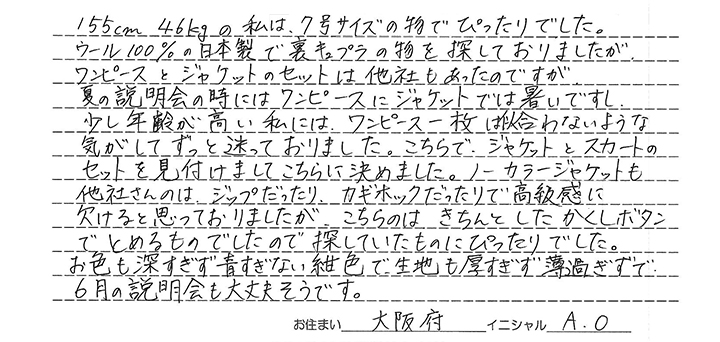 155cm 46kgの私は、7号サイズの物でぴったりでした。
ウール100%の日本製で裏キュプラの物を探しておりましたが、
ワンピースとジャケットのセットは他社もあったのですが、
夏の説明会の時にはワンピースにジャケットでは暑いですし、
少し年齢が高い私には、ワンピース一枚は似合わないような
気がしてずっと迷っておりました。こちらで、ジャケットとスカートの
セットを見付けましてこちらに決めました。ノーカラージャケットも
他社さんのは、ジップだったり、カギホックだったりで高級感に
欠けると思っておりましたが、こちらのは きちんとしたかくしボタン
でとめるものでしたので探していたものにぴったりでした。
お色も深すぎず青すぎない紺色で、生地も厚すぎず薄過ぎずで、
6月の説明会も大丈夫そうです。
お住まい 大阪府 イニシャル A.O